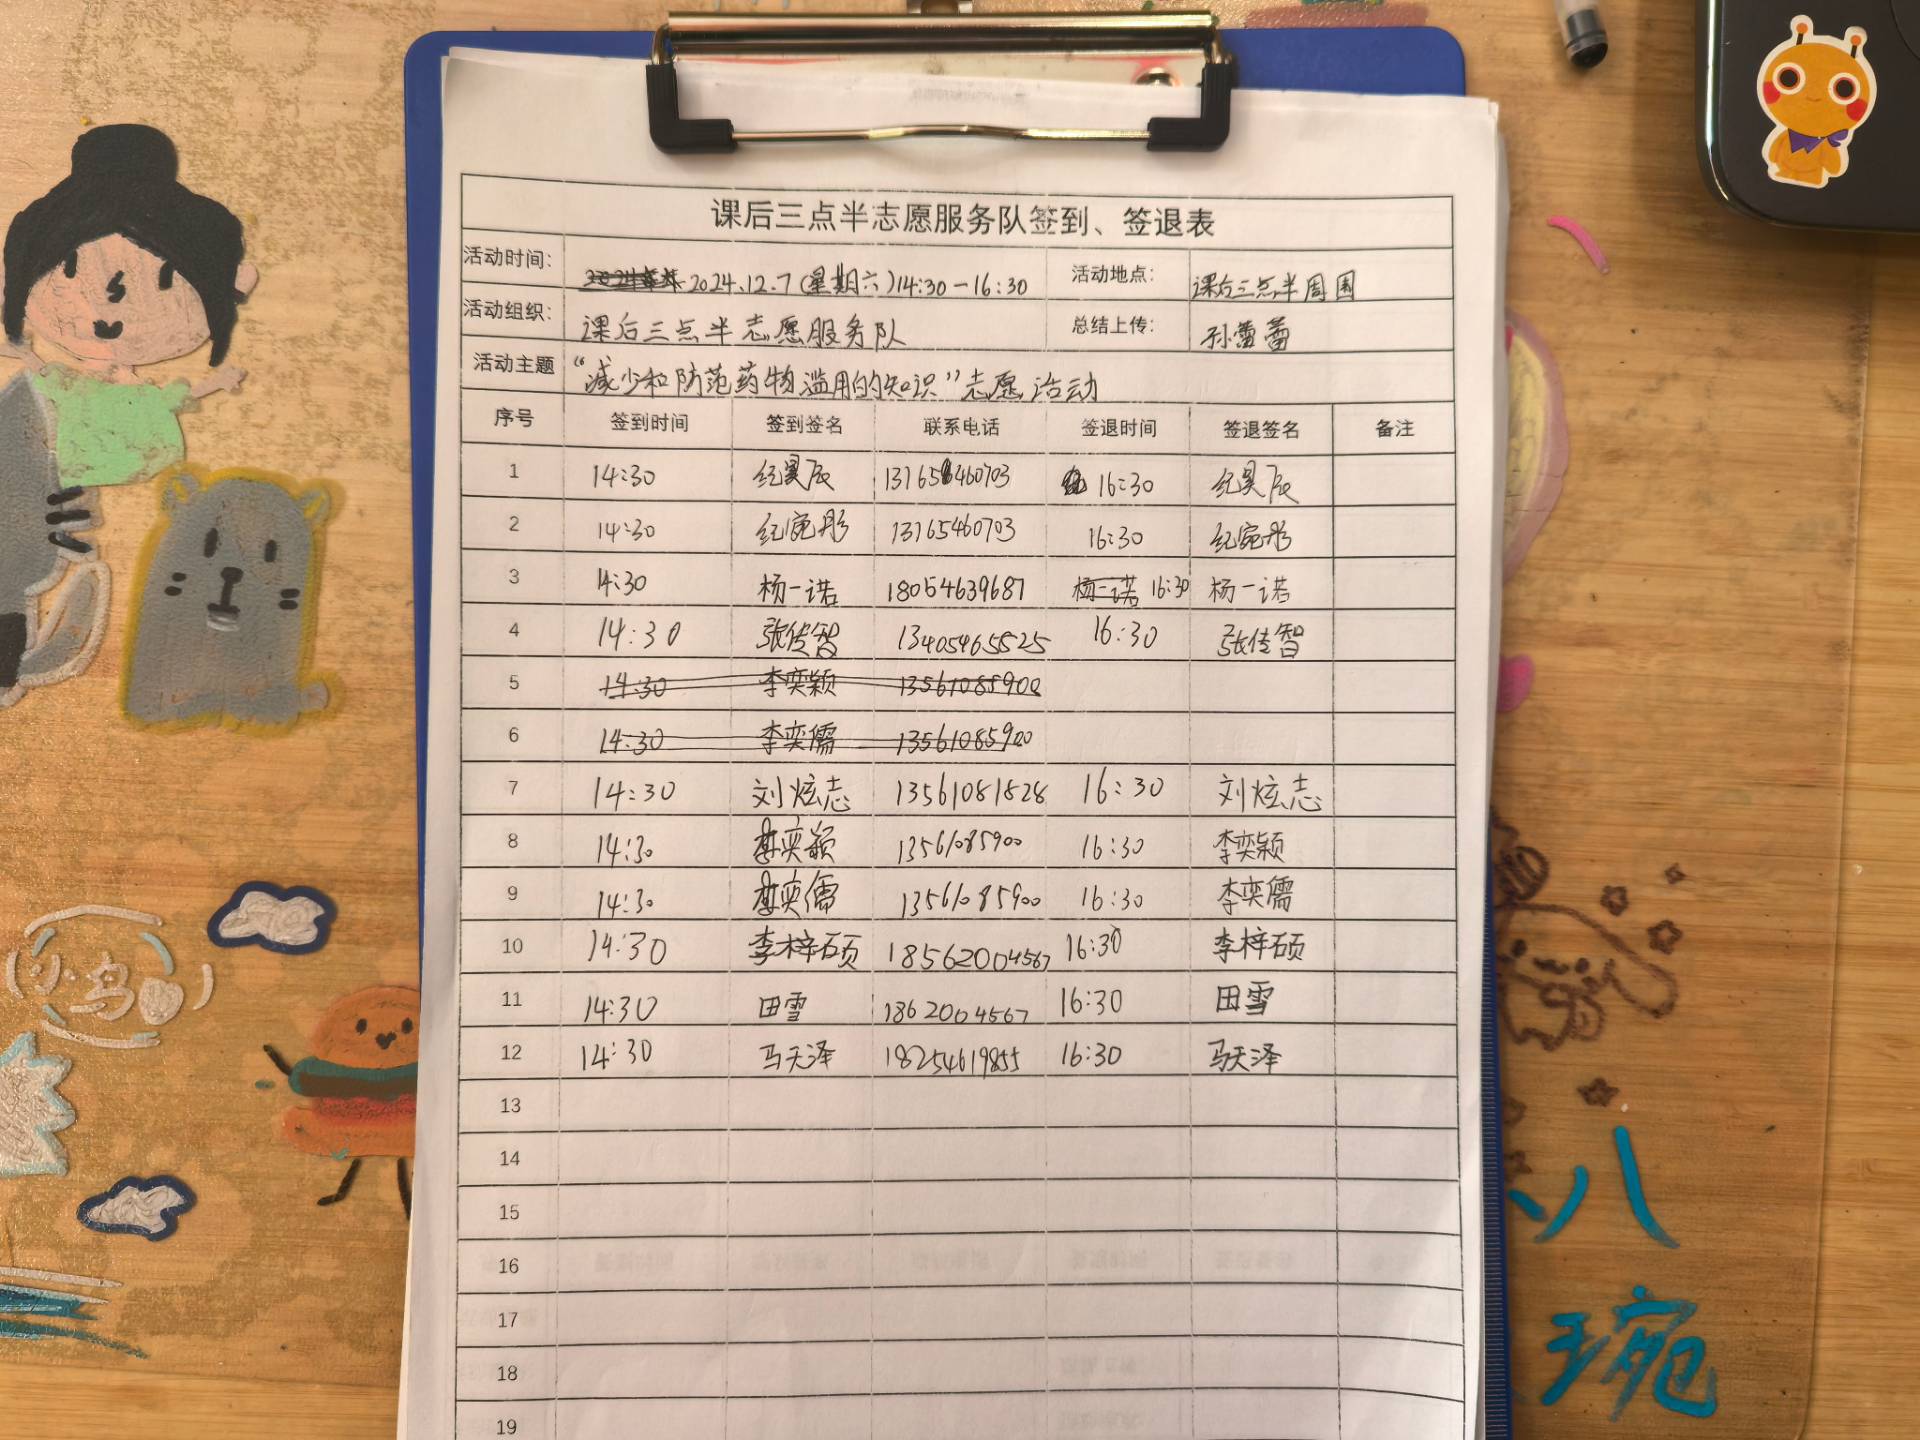 课后三点半志愿服务队签到、签退表
活动时间： 2024.12.7(星期六)14:30-16:30 活动地点： 课后三点半周围
活动组织： 课后三点半志愿服务队 总结上传： 孙蕾蕾
活动主题 “减少和防范药物滥用的知识”志愿活动
序号 签到时间 签到签名 联系电话 签退时间 签退签名 备注
1 14:30 纪昊辰 13165460703 16:30 纪昊辰
2 14:30 纪宛彤 13165460703 16:30 纪宛彤
3 14:30 杨一诺 18054639687 杨一诺 16:30 杨一诺
4 14:30 张传智 13405465525 16:30 张传智
5 14:30 李奕颖 13561085900
6 14:30 李奕儒 13561085900
7 14:30 刘炫志 13561081828 16:30 刘炫志
8 14:30 李奕颖 13561085900 16:30 李奕颖
9 14:30 李奕儒 13561085900 16:30 李奕儒
10 14:30 李梓硕 18562004567 16:30 李梓硕
11 14:30 田雪 1862004567 16:30 田雪
12 14:30 马天泽 18254619855 16:30 马天泽
13
14
15
16
17
18
19
小鸟
八
琬